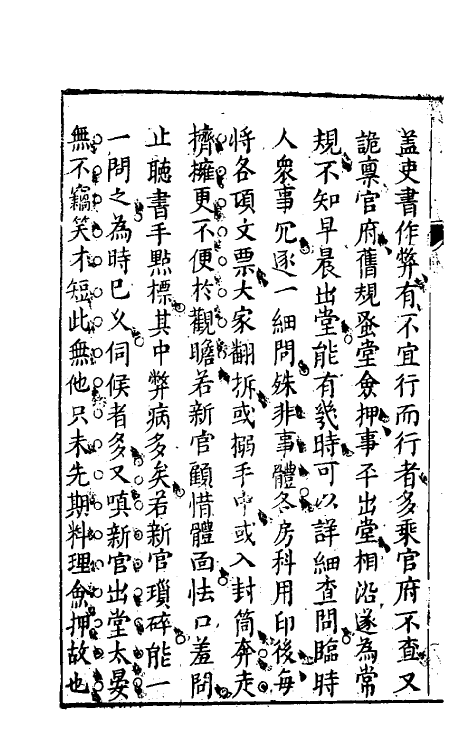 蓋吏書作弊有不宜行而行者多乘官府不查又
詭稟官府舊規蚤堂僉押事平出堂相沿遂為常
規不知早晨出堂能有幾時可以詳細查問臨時
人衆事冗逐一細問殊非事體各房科用印後每
将各項文票大家翻拆或搦手中或入封筒奔走
擠擁更不便於觀瞻若新官顧惜體面怯口羞問
止聽書手點標其中弊病多矣若新官瑣碎能一
一問之為時已久伺候者多又嗔新官出堂太晏
無不竊笑才短此無他只未先期料理僉押故也